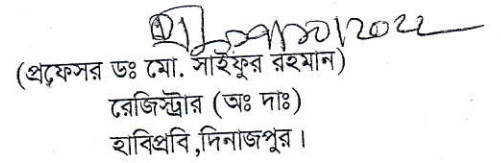 (প্রফেসর ডঃ মো. সাইফুর রহমান)
রেজিস্ট্রার (অঃ দাঃ)
হাবিপ্রবি,দিনাজপুর।